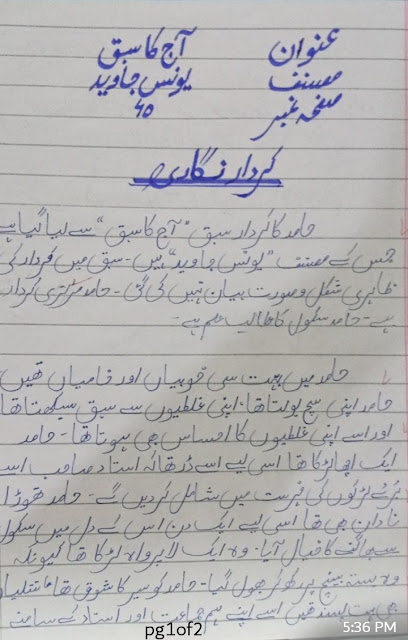 عنوان آج کا سبق
مصنف یونس جاوید
صفحہ نمبر 65
کردار نگاری
حامد کا کردار سبق "آج کا سبق" سے لیا گیا ہے
جس کے مصنف "یونس جاوید" ہیں۔ سبق میں کردار کی
ظاہری شکل و صورت بیان نہیں کی گئی۔ حامد مرکزی کردار
ہے۔ حامد سکول کا طالب علم ہے۔
حامد میں بہت سی خوبیاں اور خامیاں تھیں
حامد اپنی سچ بولتا تھا، اپنی غلطیوں سے سبق سیکھتا تھا
اور اسے اپنی غلطیوں کا احساس بھی ہوتا تھا۔ حامد
ایک اچھا لڑکا تھا اسی لیے اسے ڈر تھا کہ استاد صاحب اسے
بُرے لڑکوں کی فہرست میں شامل کر دیں گے۔ حامد تھوڑا
نادان بھی تھا اسی لیے ایک دن اس کے دل میں سکول
سے بھاگنے کا خیال آیا۔ وہ ایک لاپرواہ لڑکا تھا کیونکہ
وہ بستہ بینچ پر رکھ کر بھول گیا۔ حامد کو سیر کا شوق تھا، تتلیاں
بھی بہت پسند تھیں اسے اپنے ہم جماعت اور استاد کے سامنے
pg1of2
5:36 PM